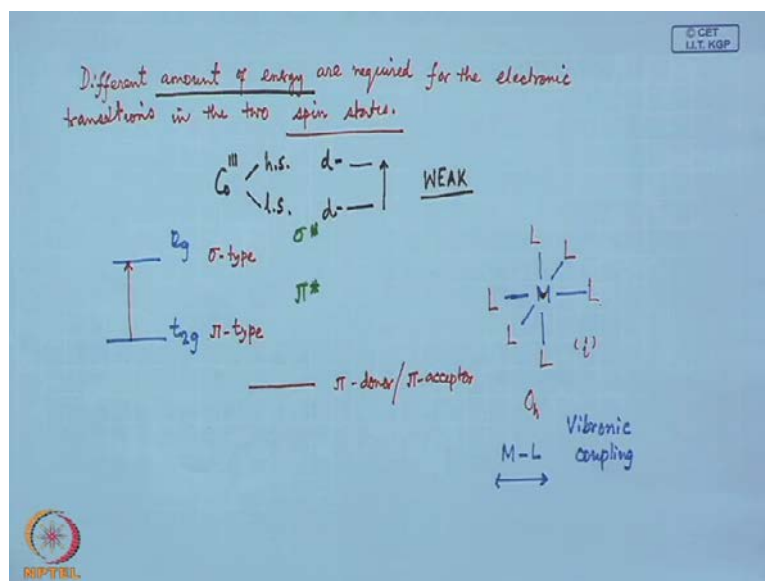 © CET
I.I.T. KGP
Different amount of energy are required for the electronic
transitions in the two spin states.
Co^III
h.s. d-
l.s. d-
WEAK
eg σ-type σ*
π*
t2g π-type
π-donor/π-acceptor
L
L
L
M
L
L
L
(i)
Oh
M-L
Vibronic
coupling
NPTEL